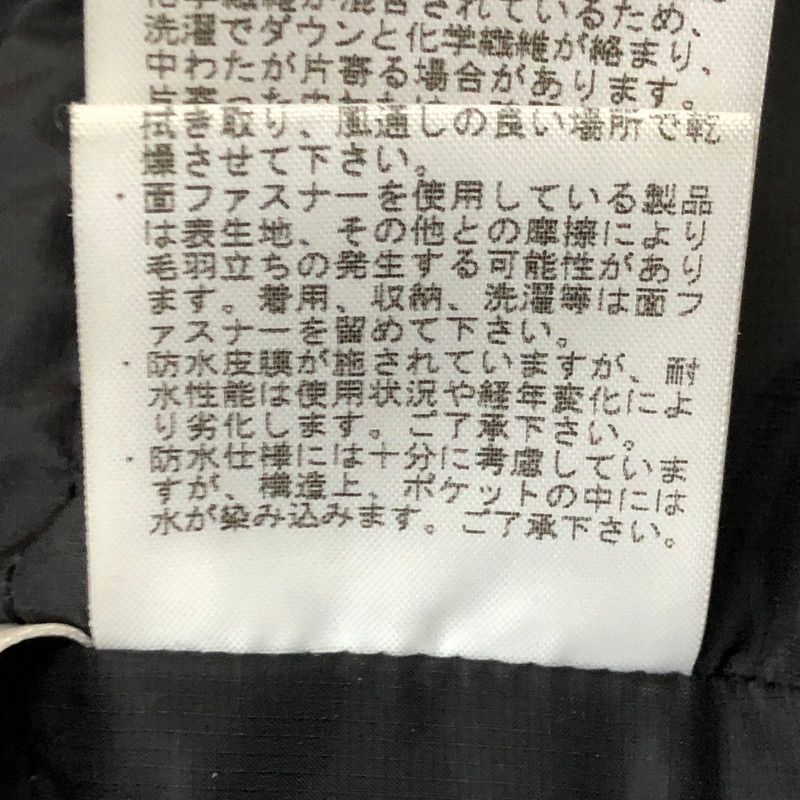 化学繊維が混合されているため、
洗濯でダウンと化学繊維が絡まり、
中わたが片寄る場合があります。
拭き取り、風通しの良い場所で乾
燥させて下さい。
・面ファスナーを使用している製品
は表生地、その他との摩擦により
毛羽立ちの発生する可能性があり
ます。着用、収納、洗濯等は面フ
ァスナーを留めて下さい。
・防水皮膜が施されていますが、耐
水性能は使用状況や経年変化によ
り劣化します。ご了承下さい。
・防水仕様には十分に考慮していま
すが、構造上、ポケットの中には
水が染み込みます。ご了承下さい。